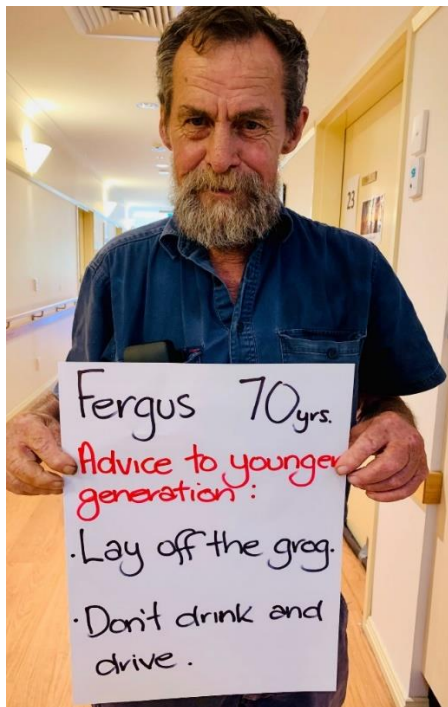 23
Fergus 70yrs.
Advice to younger
generation :
· Lay off the grog.
· Don't drink and
drive.